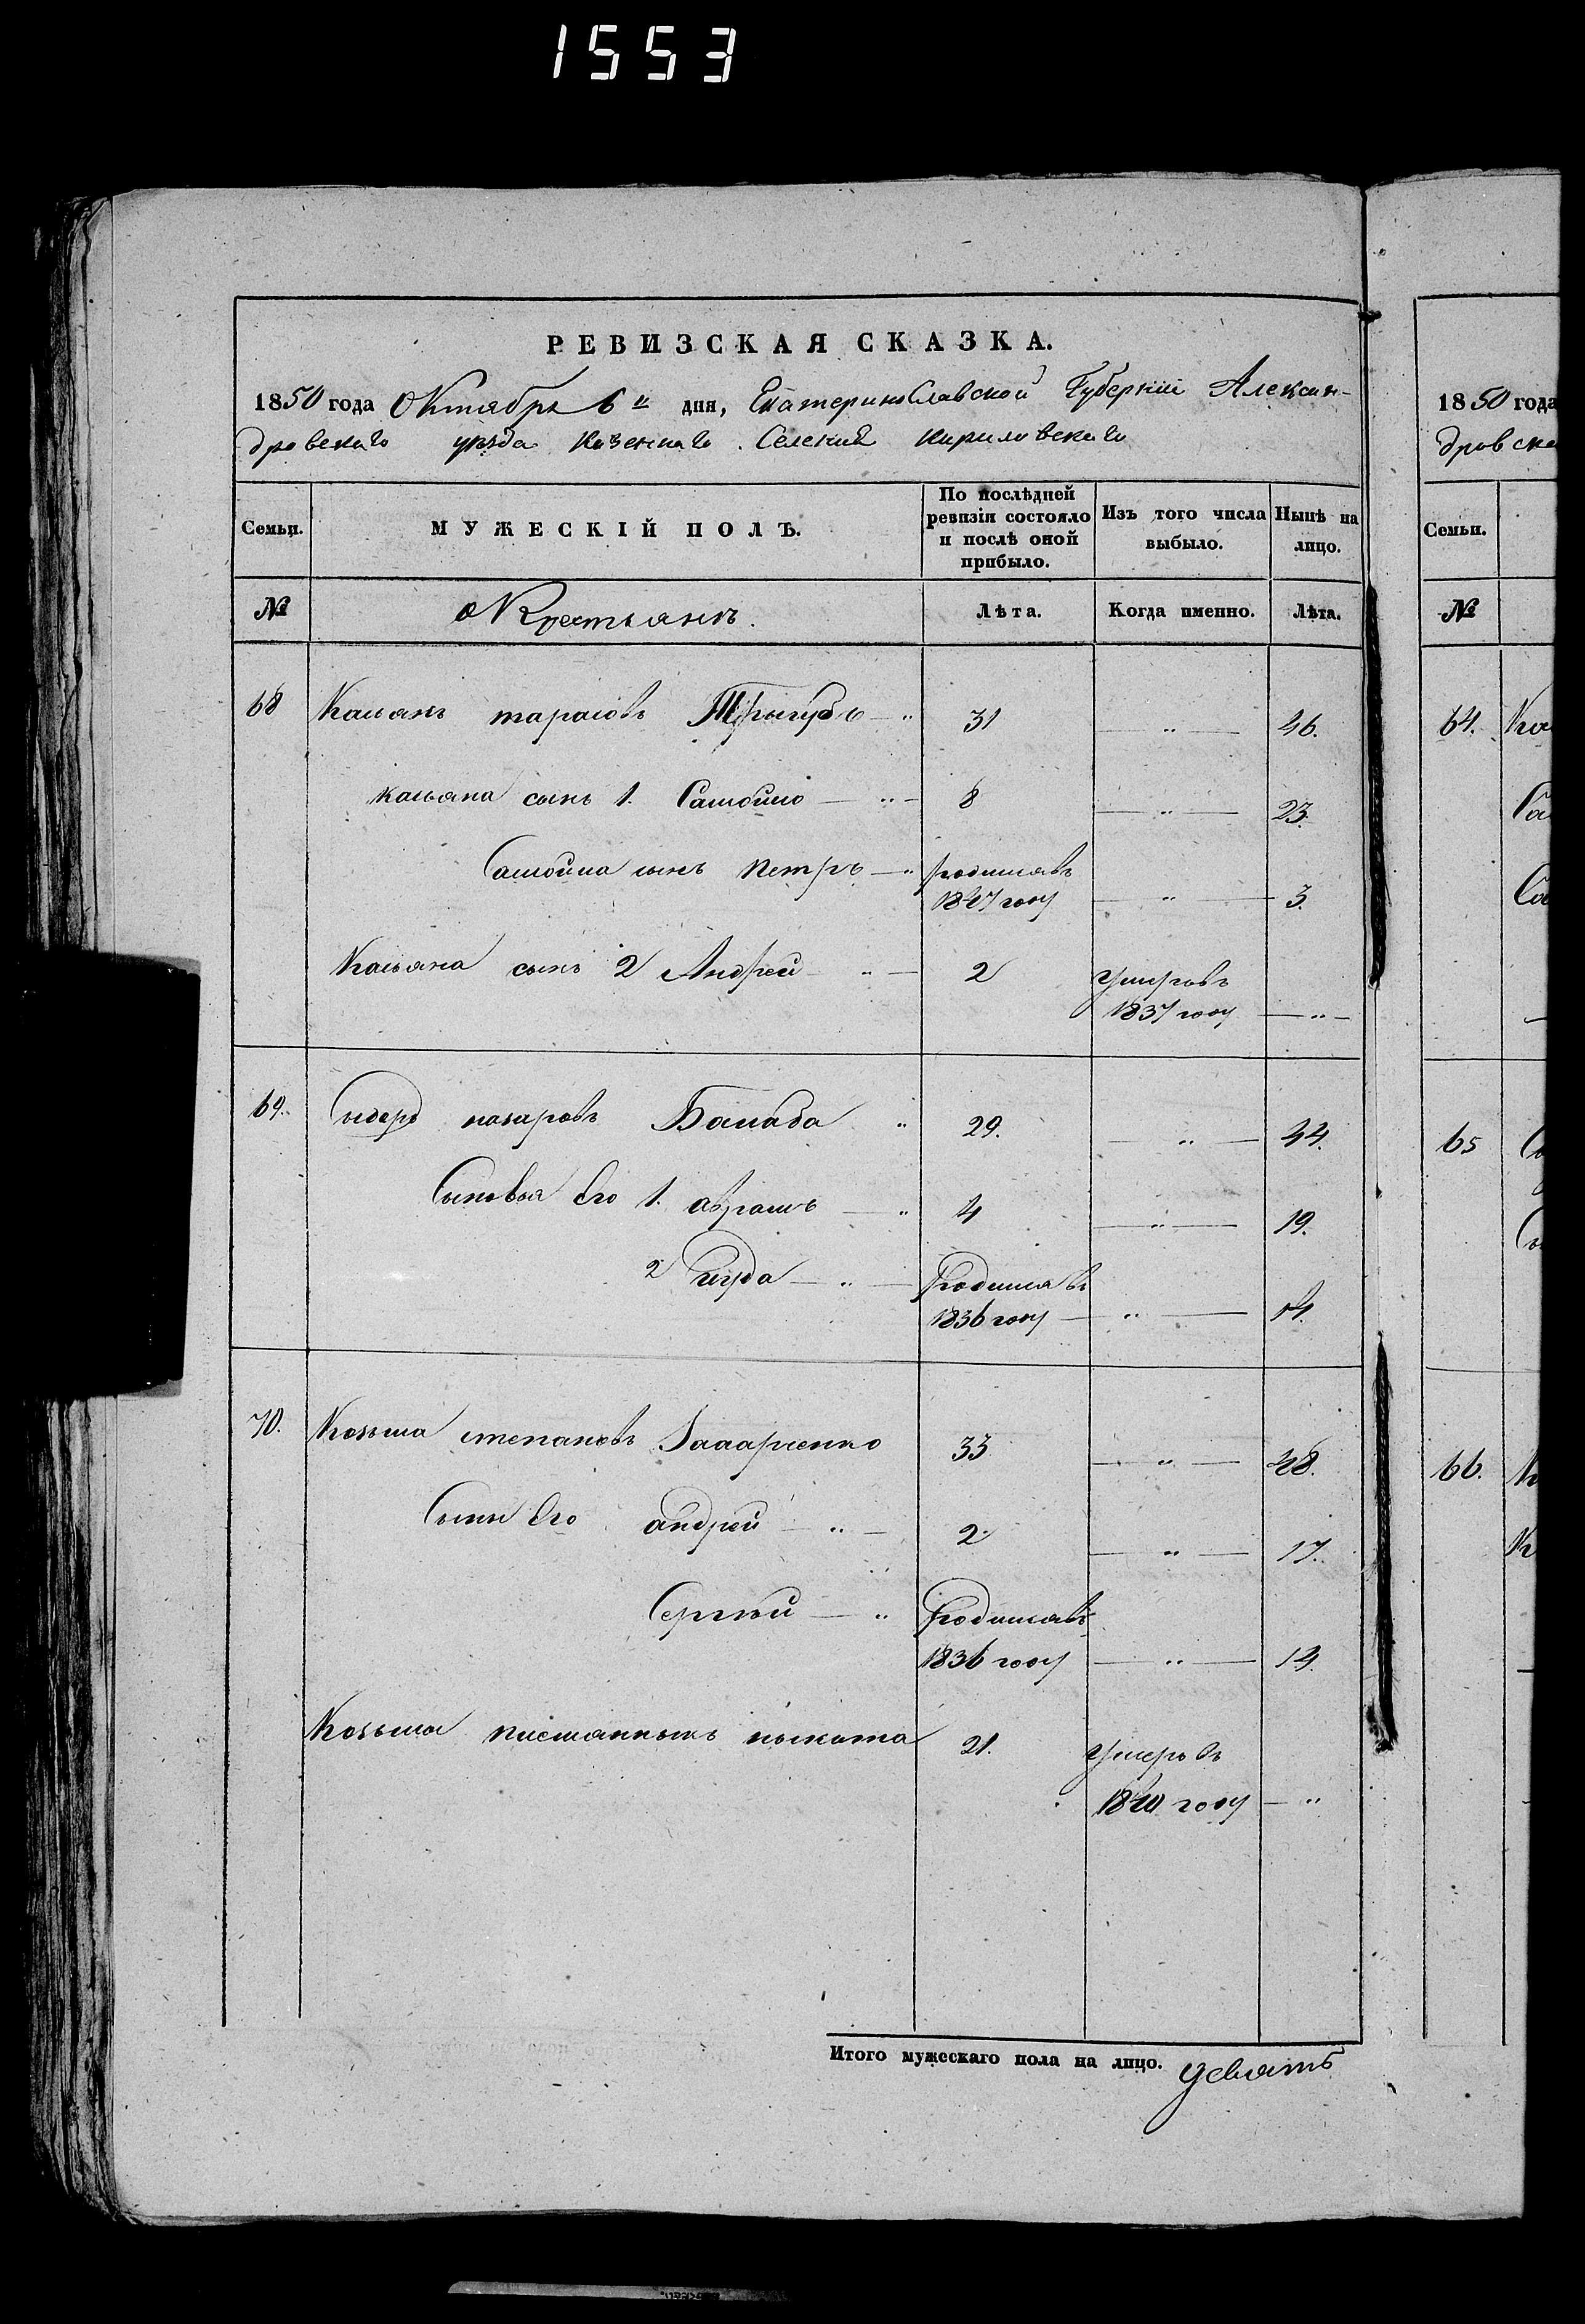 1553
РЕВИЗСКАЯ СКАЗКА.
1850 года Октября 6го дня, Екатеринославской Губернии Алексан-
дровскаго уезда Казеннаго Селения Кириловскаго
Семьи. МУЖЕСКІЙ ПОЛЪ. По послѣдней ревизіи состояло и послѣ оной прибыло. Изъ того числа выбыло. Нынѣ на лицо.
№ О Крестьянъ. Лѣта. Когда именно. Лѣта.
68 Касьянъ тарасовъ Трыгубъ — " 31 — " — 46.
касьяна сынъ 1. Самойло — " — 8 — " — 23.
Самойла сынъ петръ — " родился въ
1847 году — " — 3.
Касьяна сынъ 2 Андрей — " — 2 умеръ въ
1837 году — " —
69. Сидеръ назаровъ " 29. — " — 44.
Сыновья Его 1. аврамъ — " 4 — " — 19.
2 — " — Родился въ
1836 году — " — 14.
70. Козьма степановъ 33 — " — 48.
Сыны Его андрей — " — 2 — " — 17.
Сергѣй — " родился въ
1836 году — " — 14.
Козьма 21. умеръ въ
1840 году — "
Итого мужескаго пола на лицо. девять
1850 года
дровска
Семьи.
№
64.
65
66.